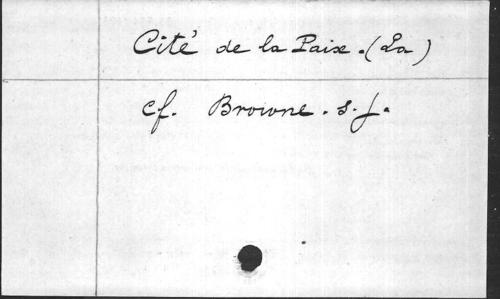 Cité de la Paix. (La)
cf. Browne. s.j.